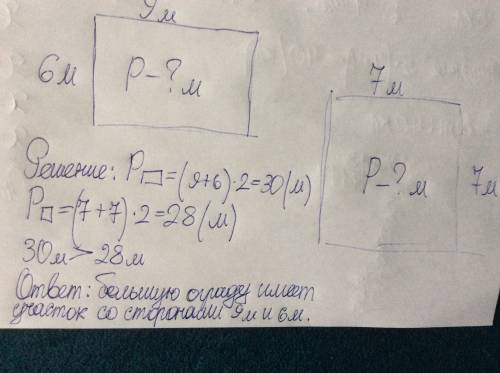 9м
6м
P-?м
7м
P-?м
7м
Решение: P▭=(9+6)·2=30(м)
P□=(7+7)·2=28(м)
30м>28м
Ответ: большую ограду имеет
участок со сторонами 9м и 6м.